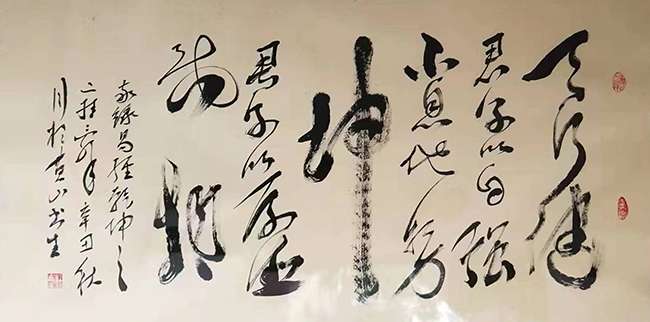 天行健
君子以自强
不息地势
坤
君子以厚德
载物
錄易經乾坤之
二卦辛丑秋
月於山